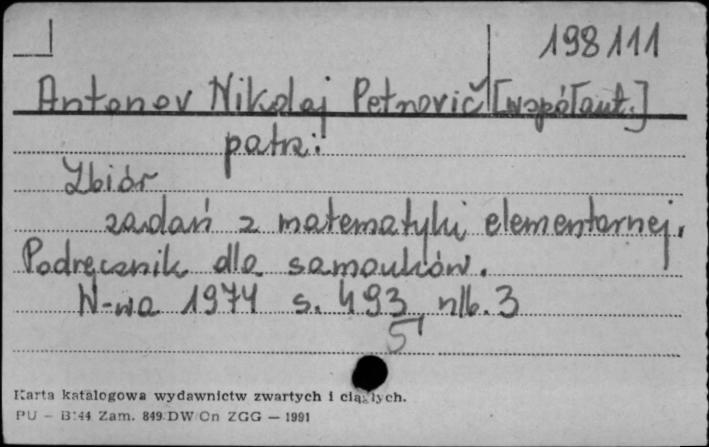 198111
Antonov Nikolaj Petrovič [współaut.]
patrz:
Zbiór
zadań z matematyki elementarnej.
Podręcznik dla samouków.
W-wa 1974 s. 493, nlb. 3
5
Karta katalogowa wydawnictw zwartych i ciągłych.
PU – B/44 Zam. 849/DW/Cn ZGG — 1991